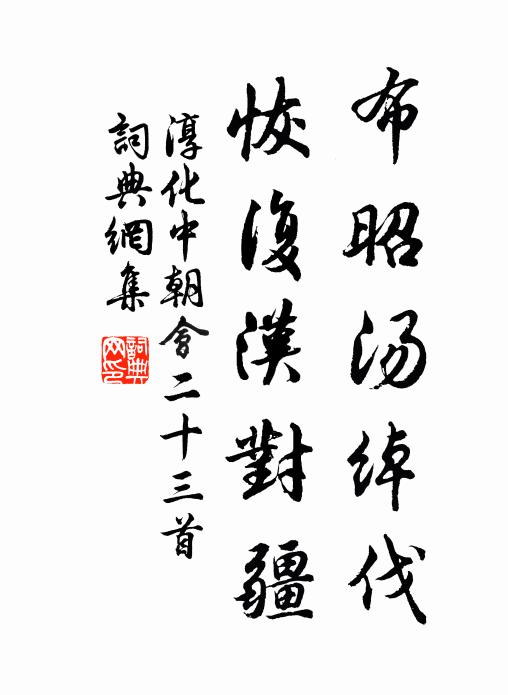 布昭汤绰伐
恢復漢對疆
淳化中朝會二十三首
詞典網集
詞典網印